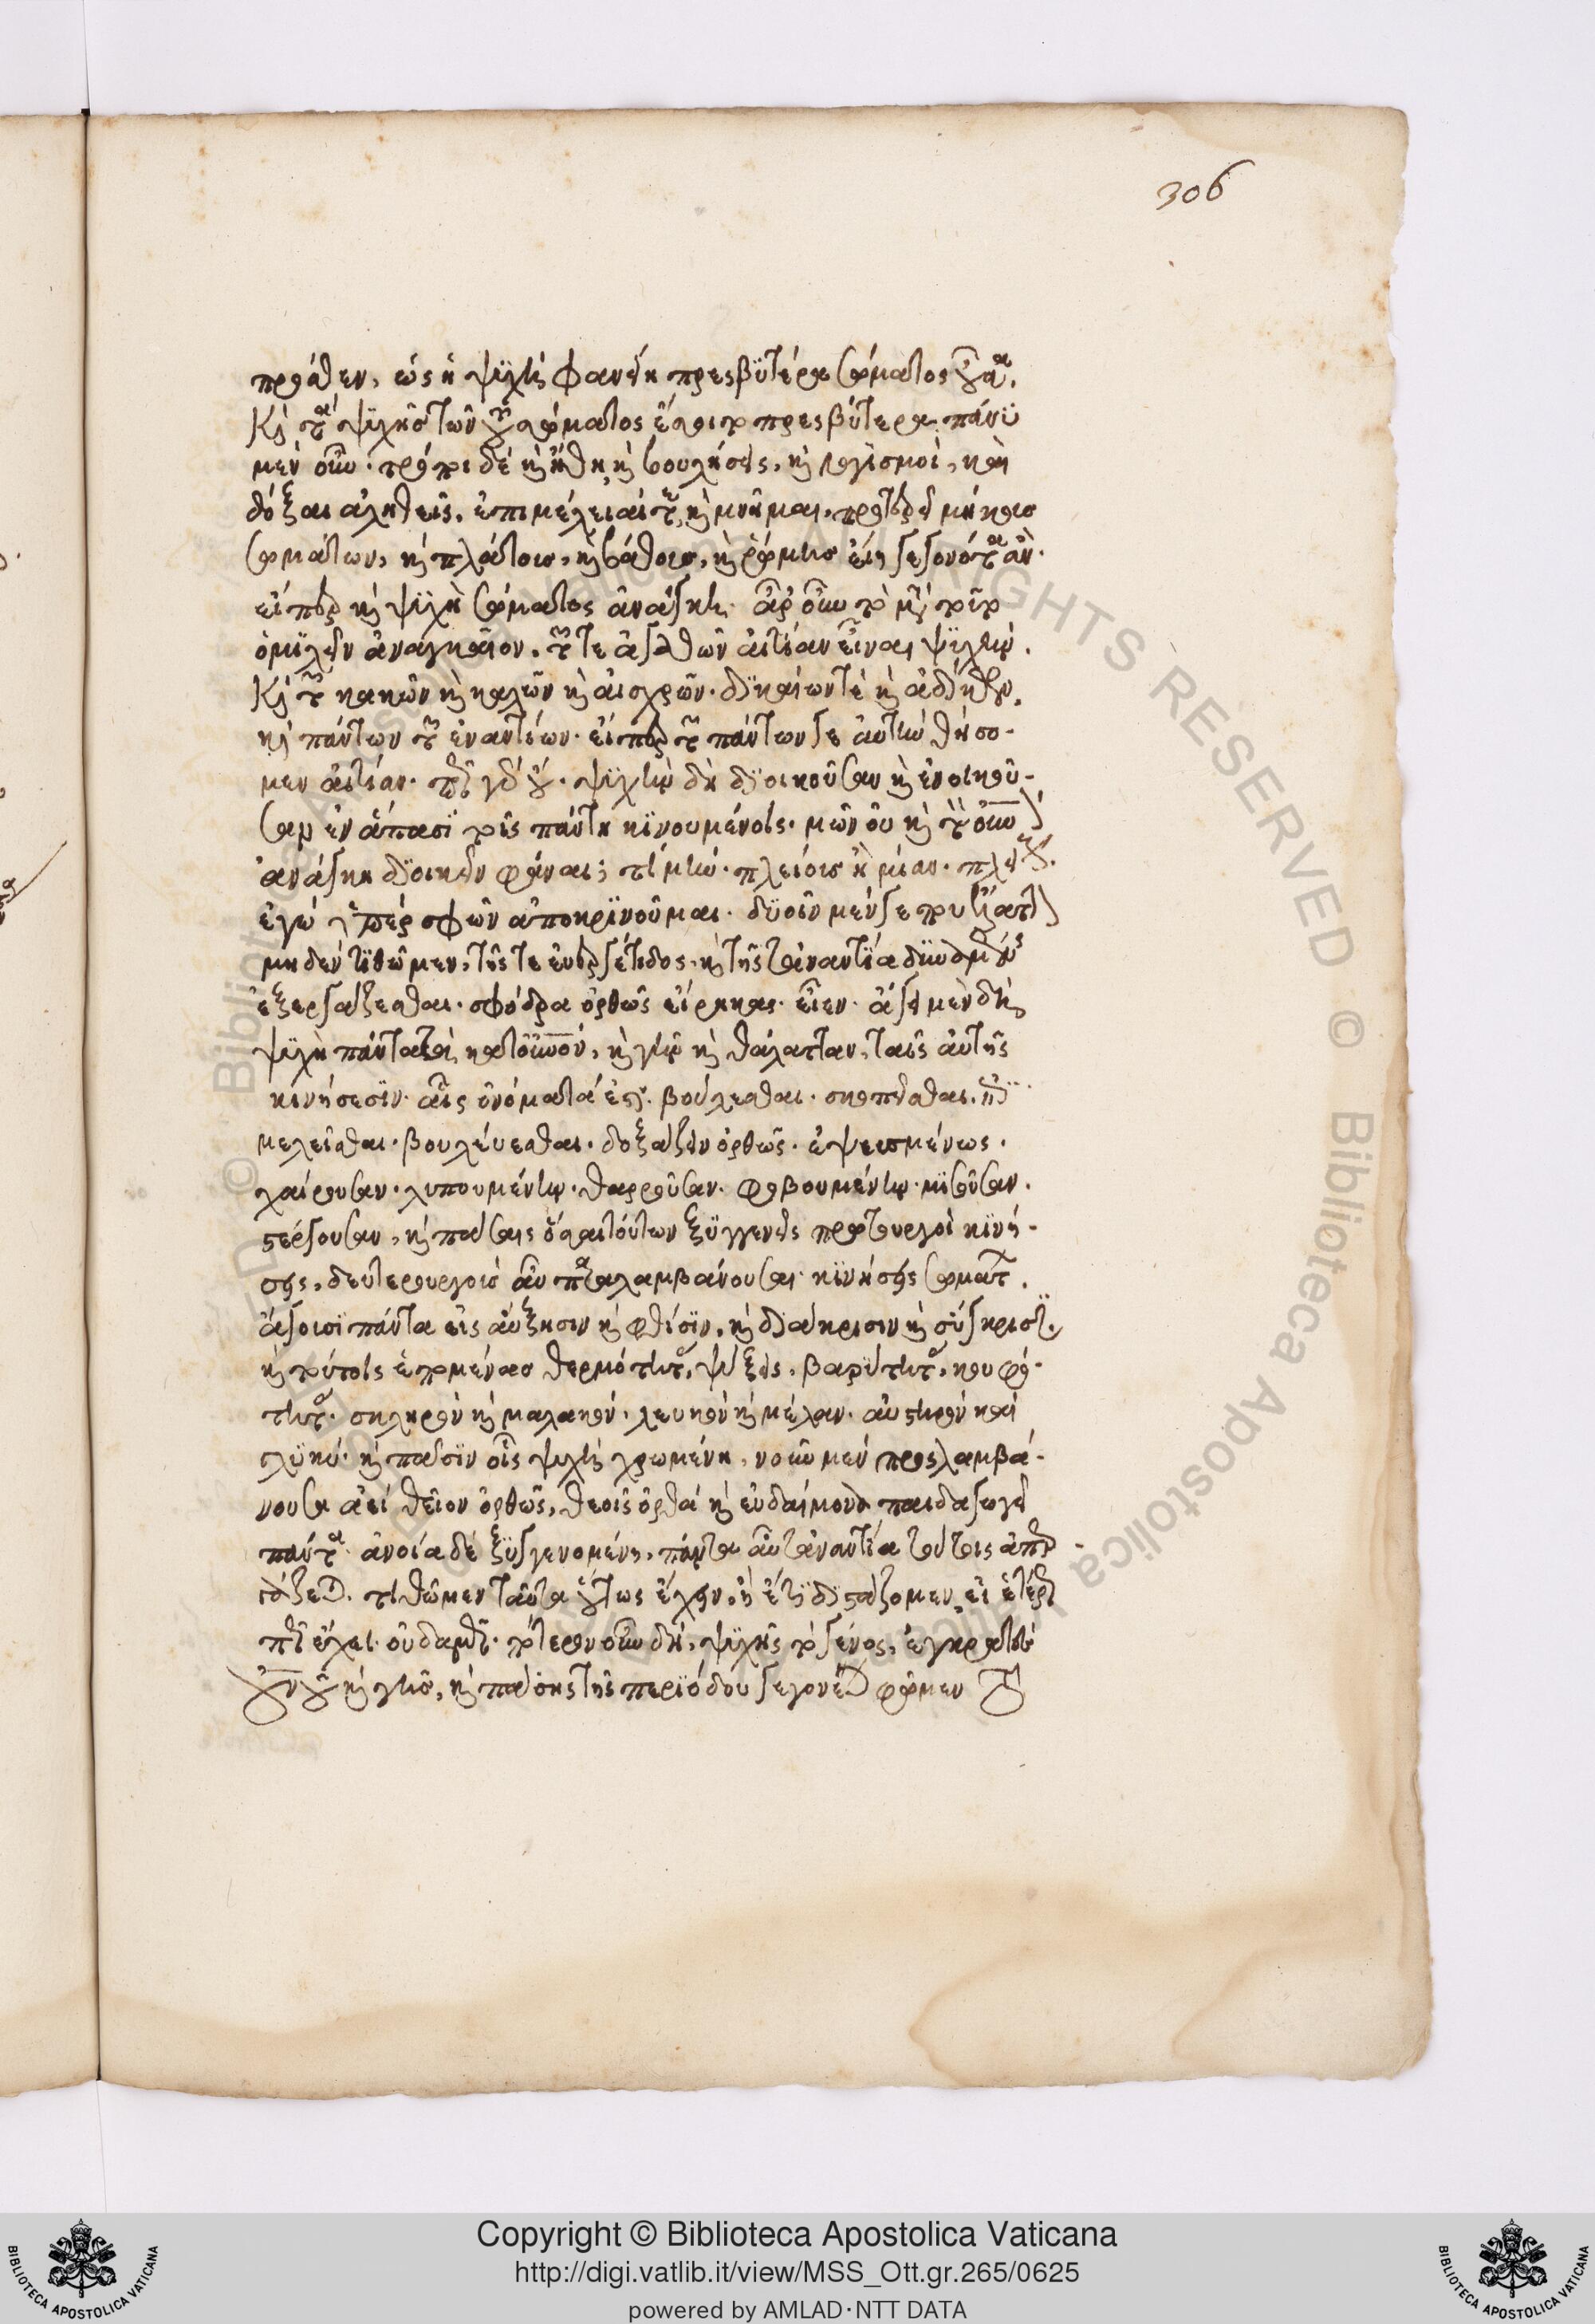 306
πρόσθεν, ὡς ἡ ψϋχὴ φανείη πρεσβϋτέρα σώματος οὖσα,
καὶ τὰ ψϋχῆς τῶν τοῦ σώματος ἔσοιτο πρεσβύτερα. πάνϋ
μὲν οὖν. τρόποι δὲ καὶ ἤθη καὶ βουλήσεις, καὶ λογισμοὶ, καὶ
δόξαι ἀληθεῖς, ἐπιμέλειαί τε καὶ μνῆμαι, πρότερα μήκους
σωμάτων, καὶ πλάτους, καὶ βάθους, καὶ ῥώμης εἴη γεγονότα ἄν.
εἴπερ καὶ ψϋχὴ σώματος ἀνάγκη. ἆρ' οὖν τὸ μετὰ τοῦτο
ὁμϊλεῖν ἀναγκαῖον, τῶν τε ἀγαθῶν αἰτίαν εἶναι ψϋχὴν.
καὶ τῶν κακῶν καὶ καλῶν καὶ αἰσχρῶν. δϊκαίων τὲ καὶ ἀδίκων,
καὶ πάντων τῶν ἐναντίων. εἴπερ τῶν πάντων γε αὐτὴν θήσο-
μεν αἰτίαν. πῶς γὰρ οὔ. ψϋχὴν δὴ δϊοικοῦσαν καὶ ἐνοικοῦ-
σαν ἐν ἅπασϊ τοῖς πάντη κϊνουμένοις. μῶν οὐ καὶ τὸν οὐρανὸν
ἀνάγκη δϊοικεῖν φάναι; τί μήν. πλείους ἢ μίαν. πλείους.
ἐγὼ ὑπὲρ σφῶν ἀποκρϊνοῦμαι. δϋοῖν μέν γε που ἔλαττον
μηδὲν τϊθῶμεν, τῆς τε εὐεργέτιδος, καὶ τῆς τἀναντία δϋναμένης
ἐξεργάζεσθαι. σφόδρα ὀρθῶς εἴρηκας. εἶεν. ἄγει μὲν δὴ
ψϋχὴ πάντα τὰ κατ' οὐρανόν, καὶ γῆν καὶ θάλατταν, ταῖς αὐτῆς
κινήσεσϊν. αἷς ὀνόματά ἐστι. βούλεσθαι. σκοπεῖσθαι. ἐπι
μελεῖσθαι. βουλεύεσθαι. δοξάζειν ὀρθῶς. ἐψευσμένως.
χαίρουσαν. λυπουμένην. θαρροῦσαν. φοβουμένην. μϊσοῦσαν.
στέργουσαν, καὶ πάσαις ὅσαι τούτων ξϋγγενεῖς πρωτουργοὶ κϊνή-
σεις, δευτερουργοὺς αὖ παραλαμβάνουσαι κϊνήσεις σωμάτων.
ἄγουσϊ πάντα εἰς αὔξησιν καὶ φθίσϊν, καὶ δϊάκρισιν καὶ σύγκρισιν.
καὶ τούτοις ἑπομένας θερμότητας, ψύξεις, βαρϋτητας, κουφό-
τητας. σκληρὸν καὶ μαλακόν. λευκὸν καὶ μέλαν. αὐστηρὸν καὶ
γλϋκύ. καὶ πᾶσϊν οἷς ψυχὴ χρωμένη, νοῦν μὲν προσλαμβά-
νουσα ἀεὶ θεῖον ὀρθῶς, θεοῖς ὀρθὰ καὶ εὐδαίμονα παιδαγωγεῖ
πάντα. ἀνοία δὲ ξϋγγενομένη, πάντα αὖ τἀναντία τούτοις ἀπερ-
γάζεται. τιθῶμεν ταῦτα οὕτως ἔχειν, ἢ ἔτϊ δϊστάζομεν, εἰ ἑτέρως
πως ἔχει. οὐδαμῶς. πότερον οὖν δὴ, ψϋχῆς τὸ γένος, ἐγκρατὲς
οὐρανοῦ καὶ γῆς, καὶ πάσης τῆς περϊόδου γεγονέναι φῶμεν τὸ
Copyright © Biblioteca Apostolica Vaticana
http://digi.vatlib.it/view/MSS_Ott.gr.265/0625
powered by AMLAD·NTT DATA